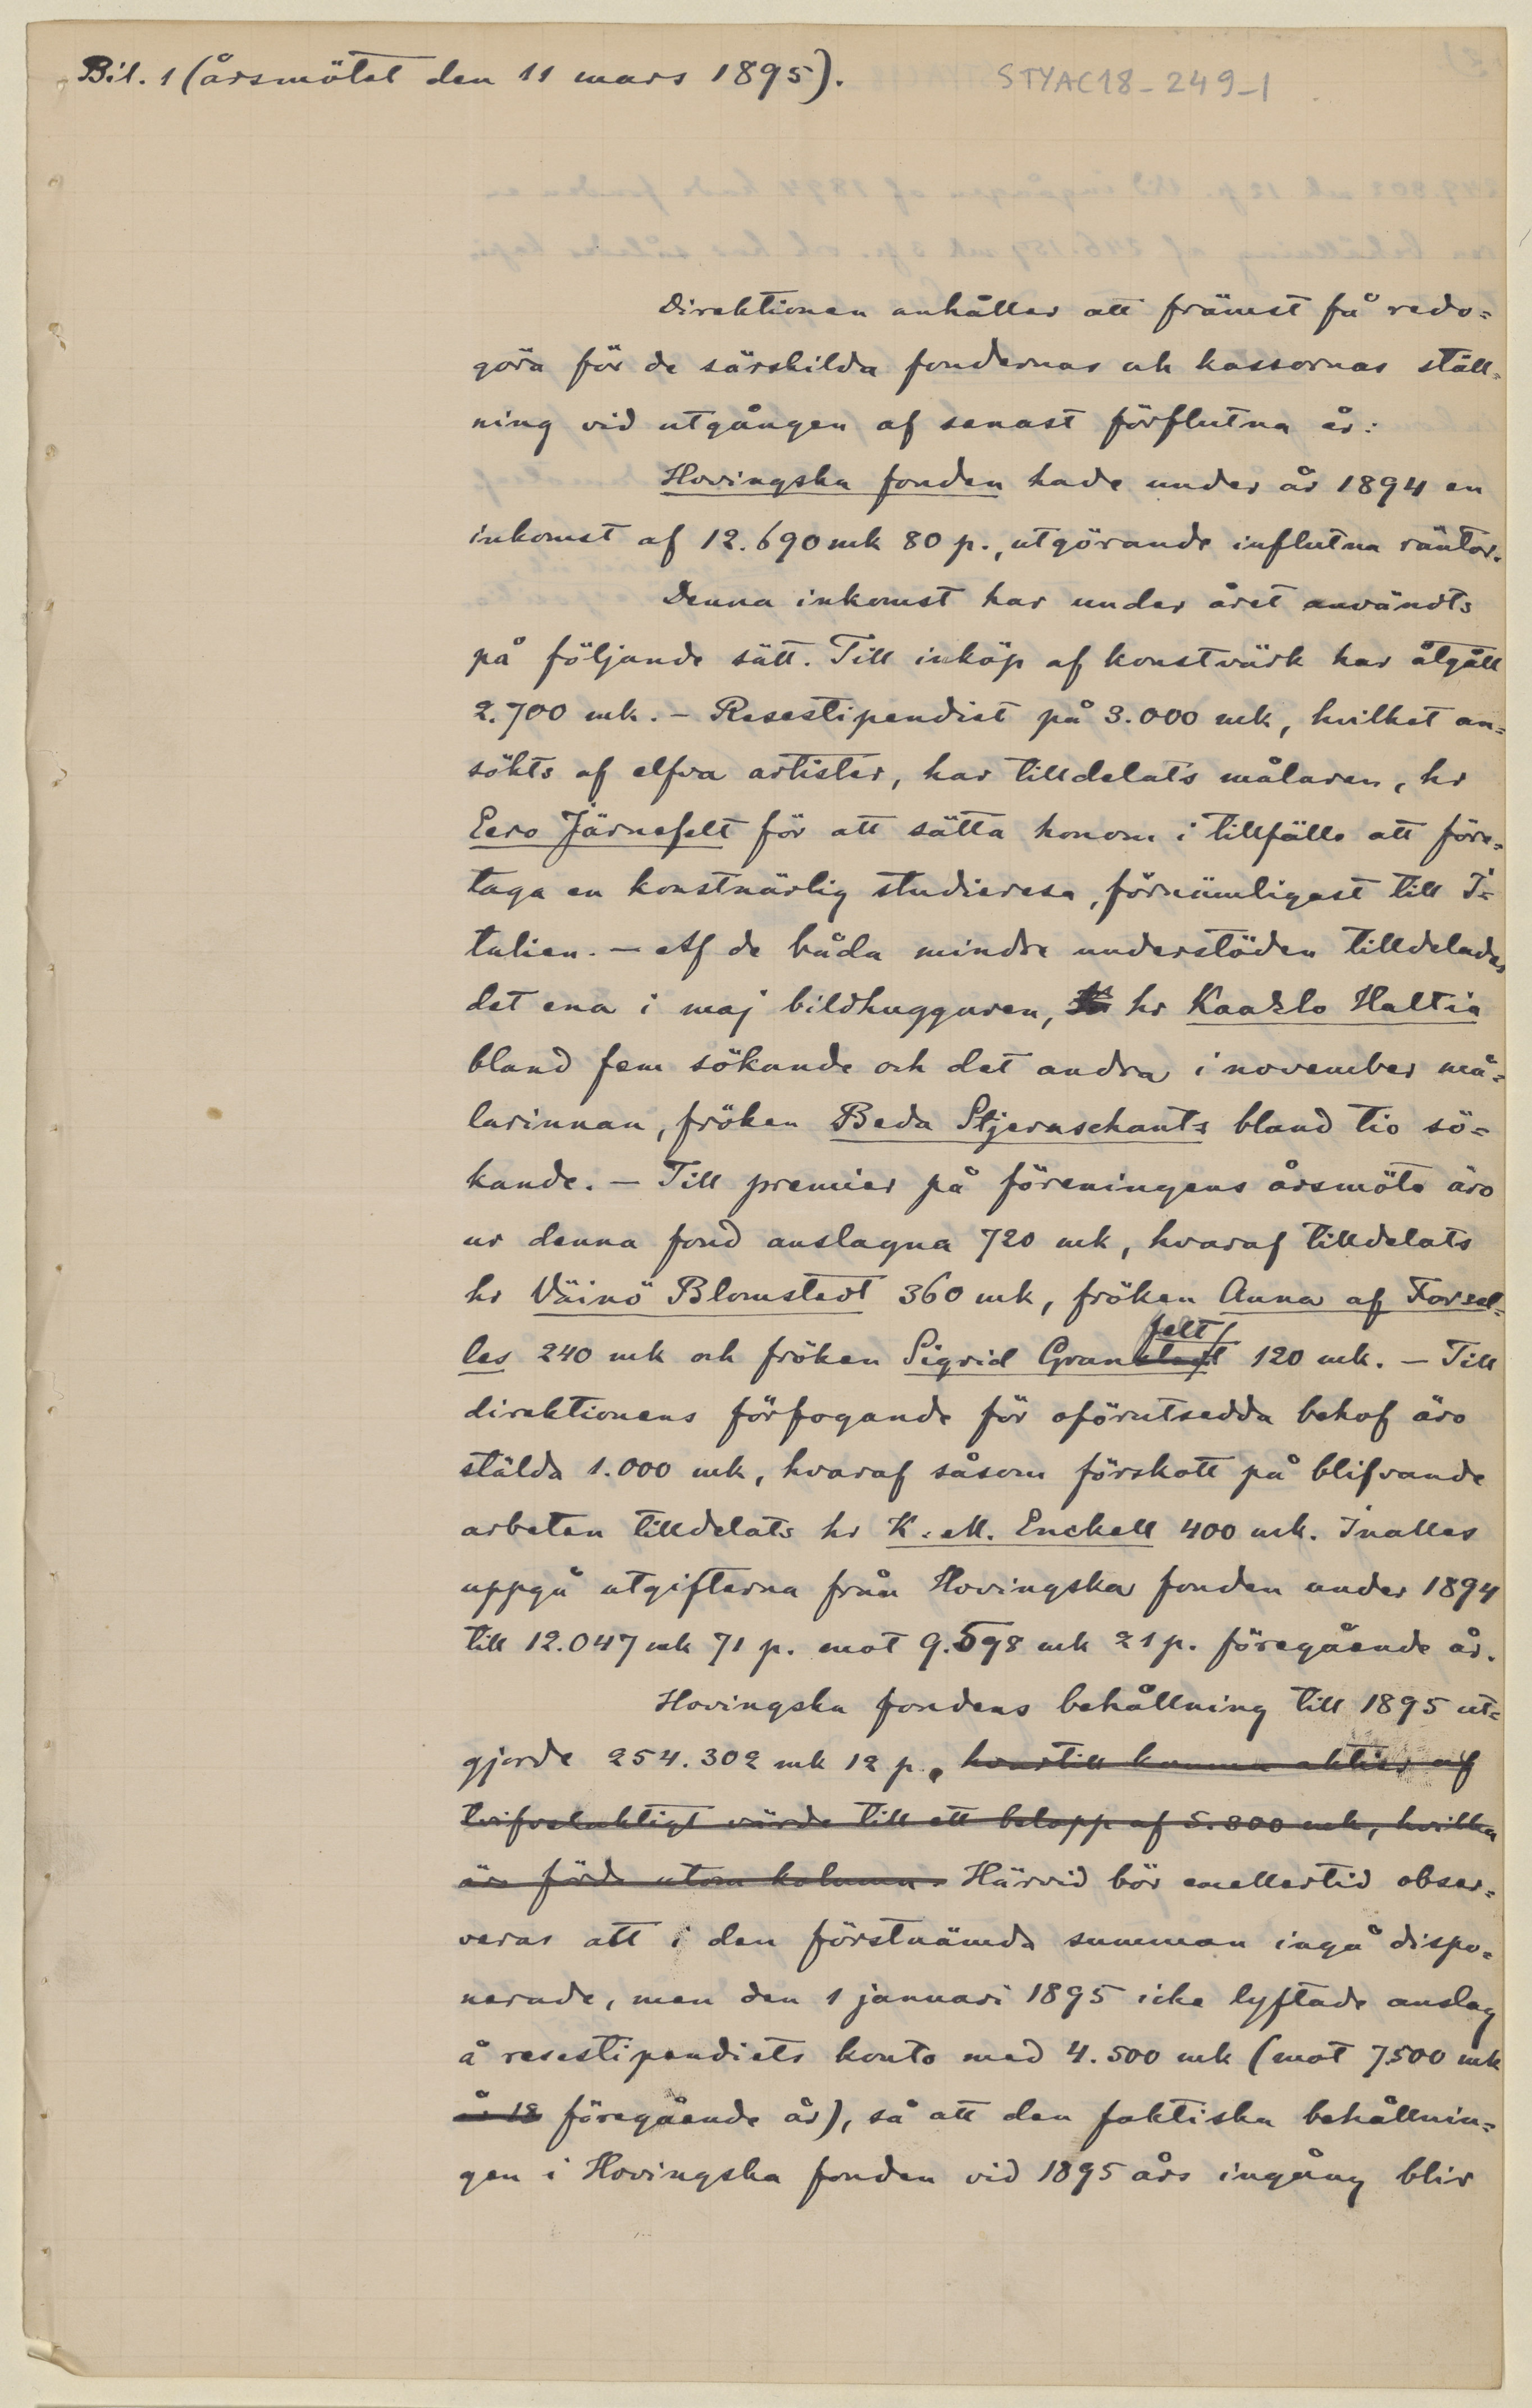 Bil. 1 (årsmötet den 11 mars 1895).
STYAC18-249-1
Direktionen anhåller att främst få redo=
göra för de särskilda fondernas och kassornas ställ=
ning vid utgången af senast förflutna år:
Hovingska fonden hade under år 1894 en
inkomst af 12.690 mk 80 p., utgörande influtna räntor.
Denna inkomst har under året användts
på följande sätt. Till inköp af konstvärk har åtgått
2.700 mk. – Resestipendiet på 3.000 mk, hvilket an=
sökts af elfva artister, har tilldelats målaren, hr
Eero Järnefelt för att sätta honom i tillfälle att före=
taga en konstnärlig studieresa, förnämligast till I=
talien. – Af de båda mindre understöden tilldelades
det ena i maj bildhuggaren, hr Kaarlo Haltia
bland fem sökande och det andra i november må=
larinnan, fröken Beda Stjernschants bland tio sö=
kande. – Till premier på föreningens årsmöte äro
ur denna fond anslagna 720 mk, hvaraf tilldelats
hr Väinö Blomstedt 360 mk, fröken Anna af Forsel=
felt/
les 240 mk och fröken Sigrid Gran 120 mk. – Till
direktionens förfogande för oförutsedda behof äro
stälda 1.000 mk, hvaraf såsom förskott på blifvande
arbeten tilldelats hr K. M. Enckell 400 mk. Inalles
uppgå utgifterna från Hovingska fonden under 1894
till 12.047 mk 71 p. mot 9.598 mk 21 p. föregående år.
Hovingska fondens behållning till 1895 ut=
gjorde 254.302 mk 12 p. hvartill komma aktier af
tvifvelaktigt värde till ett belopp af 5.800 mk, hvilka
äro förda utom kolumn. Härvid bör emellertid obser=
veras att i den förstnämda summan ingå dispo=
nerade, men den 1 januari 1895 icke lyftade anslag
å resestipendiets konto med 4.500 mk (mot 7500 mk
år 18 föregående år), så att den faktiska behållnin=
gen i Hovingska fonden vid 1895 års ingång blir